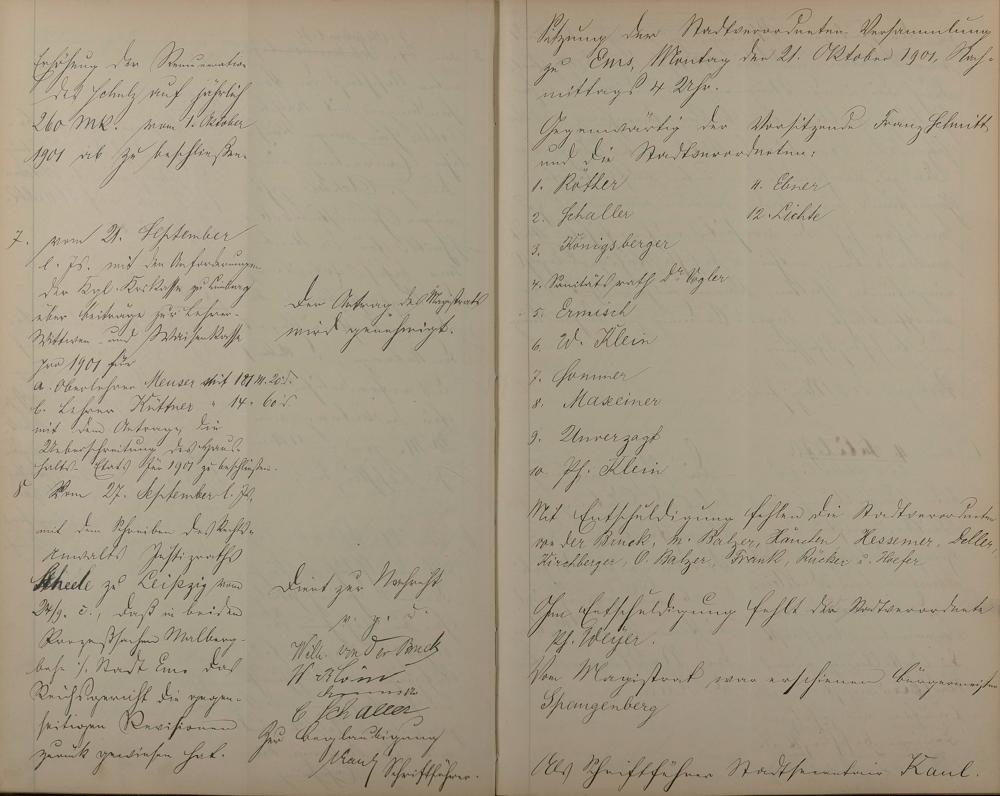 Erhöhung der Remuneration
des Schulz auf jährlich
260 Mk. vom 1. Oktober
1901 ab zu beschließen.
7. vom 21. September
l. Js. mit den Anforderungen
der Kgl. Kreiskasse zu Limburg
über Beiträge zur Lehrer-
Wittwen- und Waisenkasse
pro 1901 für
a. Oberlehrer Meuser mit 181 M. 20 d.
b. Lehrer Küttner " 14. 60 d.
mit dem Antrage, die
Ueberschreitung des Haus-
halts-Etats für 1901 zu beschließen.
Der Antrag des Magistrats
wird genehmigt.
8 Vom 27. September l. Js.
mit dem Schreiben des Rechts-
Anwalts Justizraths
Scheele zu Leipzig vom
24/9. c., daß in beiden
Prozeßsachen Malberg-
bahn ./. Stadt Ems das
Reichsgericht die gegen-
seitigen Revisionen
zurück gewiesen hat.
Dient zur Nachricht
v. g. u.
Wilh. von der Bruck
Ermisch
C Schaller
Zur Beglaubigung
Kaul
Schriftführer.
Sitzung der Stadtverordneten-Versammlung
zu Ems, Montag den 21. Oktober 1901, Nach-
mittags 4 Uhr.
Gegenwärtig der Vorsitzende Franz Schmitt
und die Stadtverordneten:
1. Röther
2. Schaller
3. Königsberger
4. Sanitätsrath Dr. Vogler
5. Ermisch
6. W. Klein
7. Sommer
8. Maxeiner
9. Unverzagt
10. Ph. Klein
11. Ebner
12. Lichte
Mit Entschuldigung fehlen die Stadtverordneten
von der Bruck, M. Balzer, Hessemer, Doller,
Kirchberger, O. Balzer, Frank, Rücker u. Hoefer
Ohne Entschuldigung fehlt der Stadtverordnete
Ph. Weyer.
Vom Magistrat war erschienen Bürgermeister
Spangenberg
Als Schriftführer Stadtsecretair Kaul.